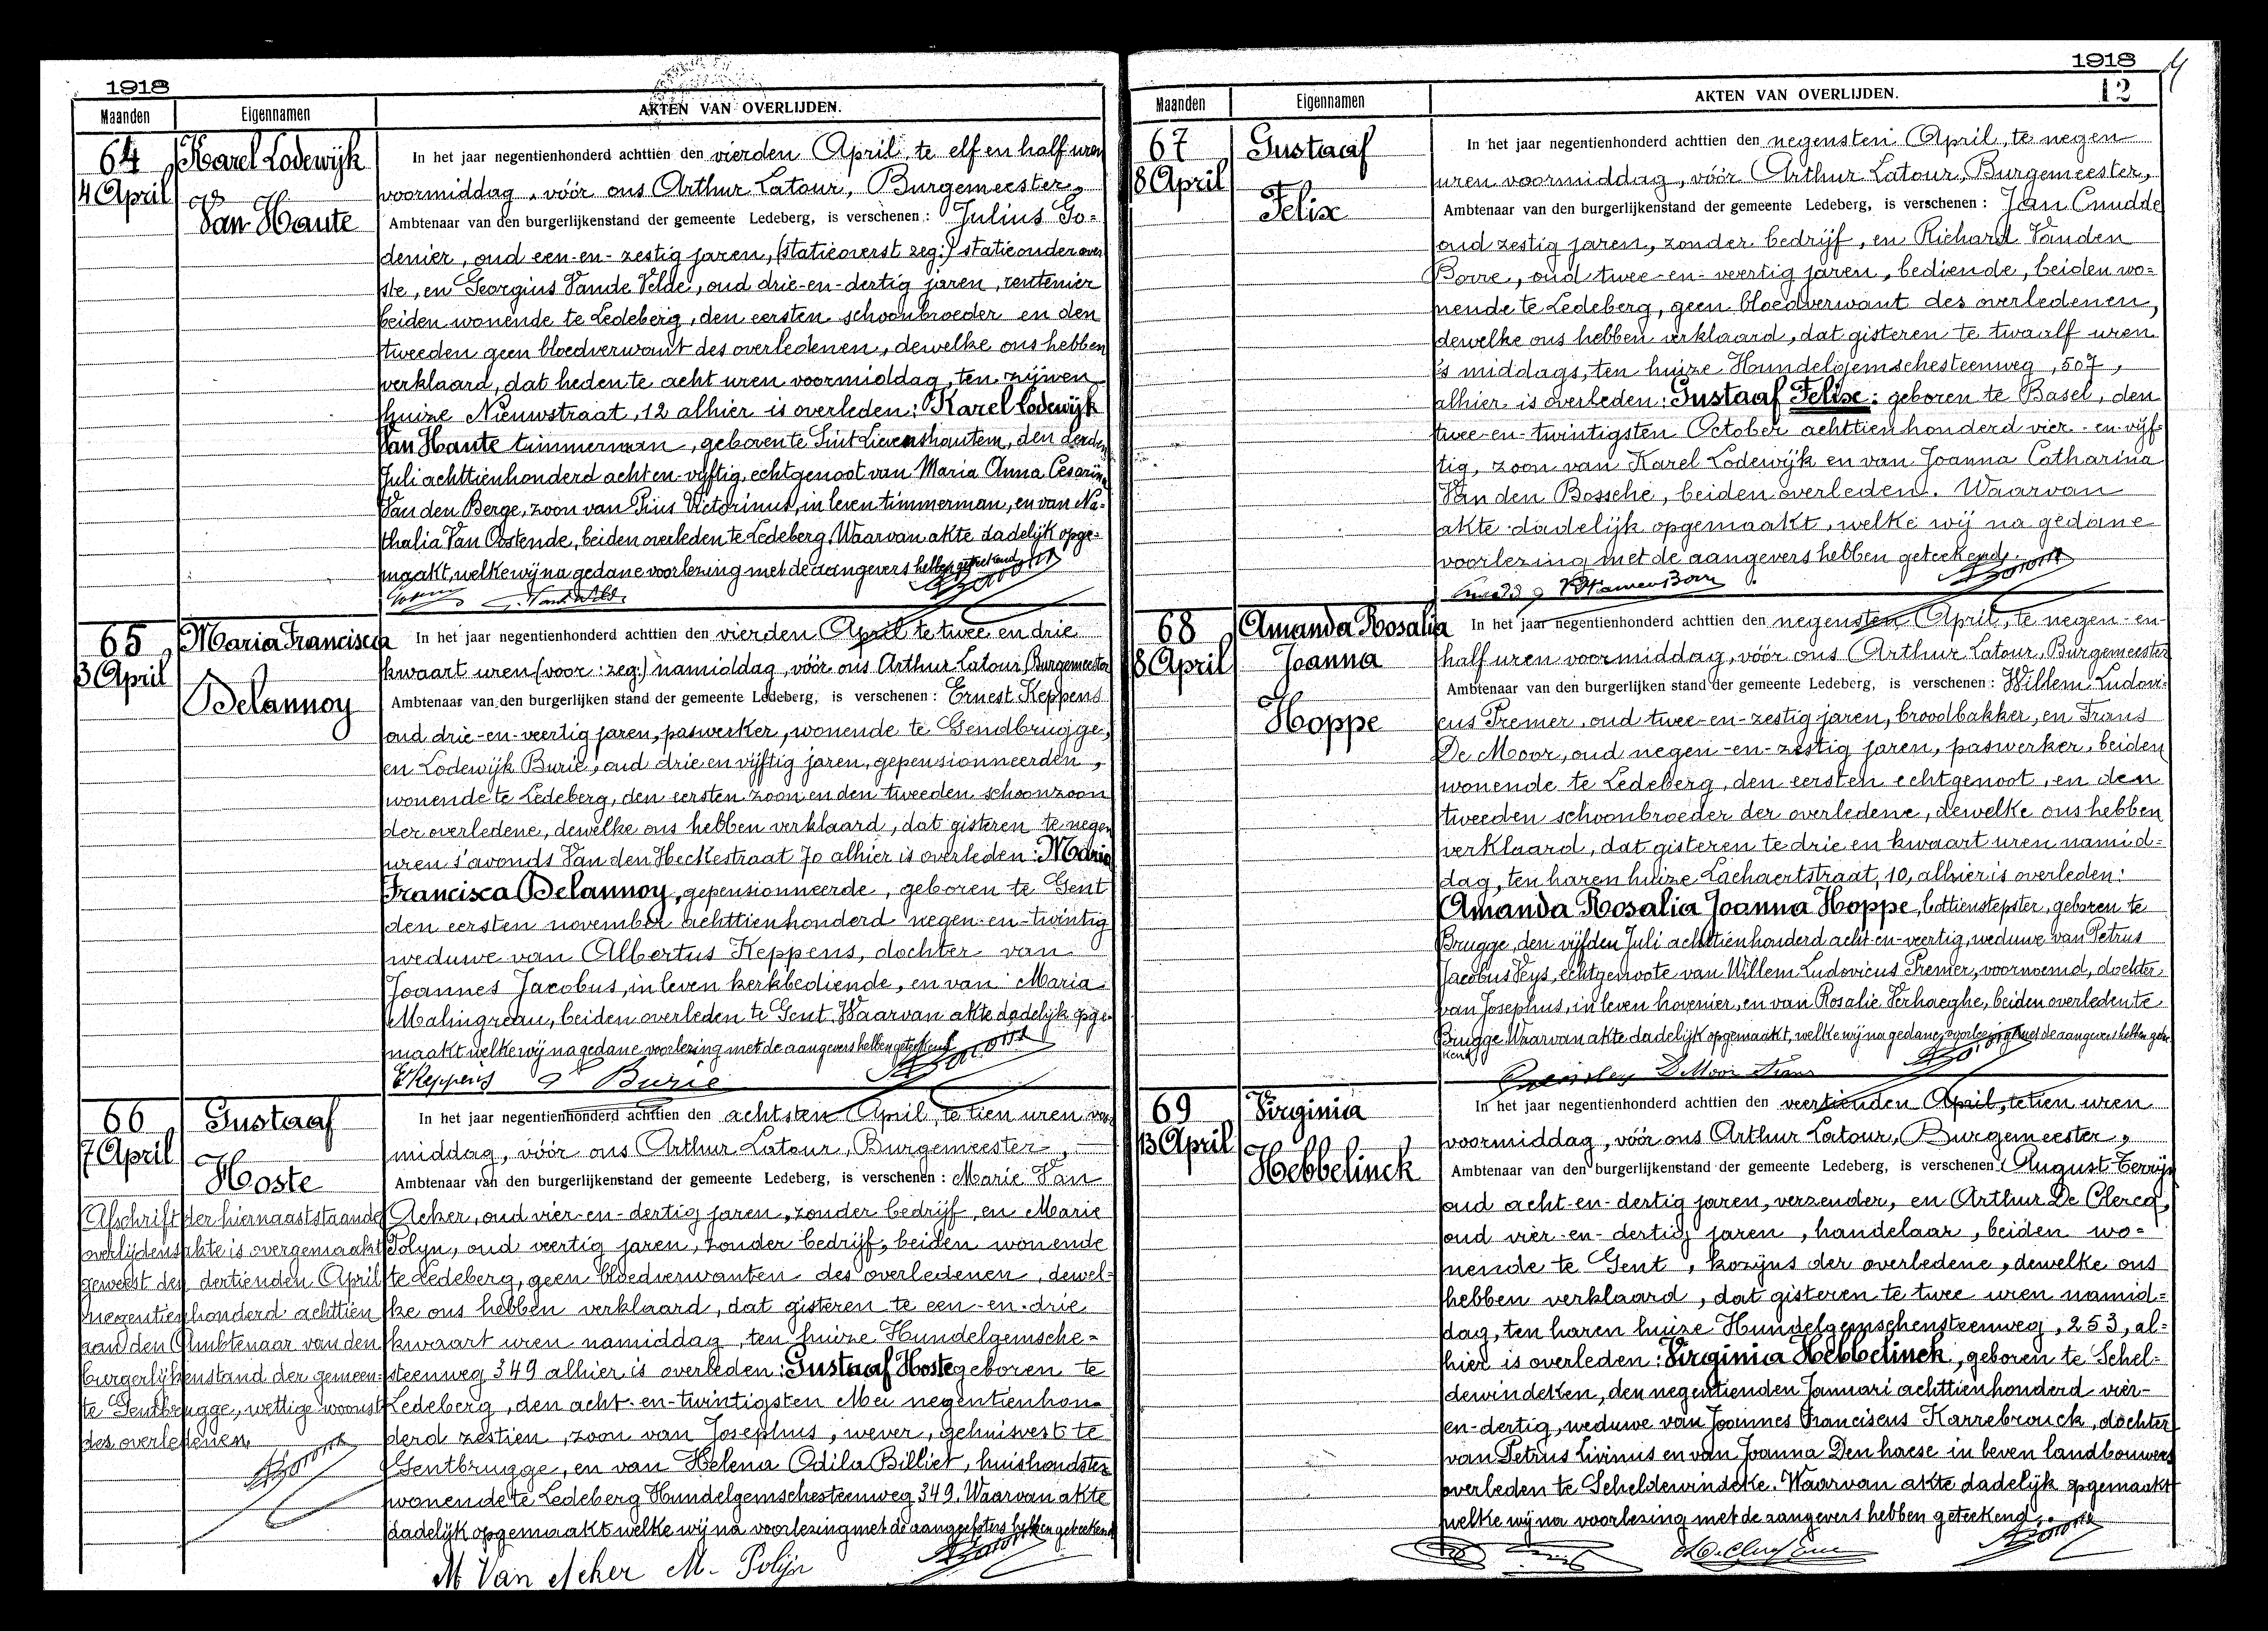 1918
Maanden Eigennamen AKTEN VAN OVERLIJDEN.
64
4 April
Karel Lodewijk
Van Haute
In het jaar negentienhonderd achttien den vierden April, te elf en half uren
voormiddag, vóór ons Arthur Latour, Burgemeester,
Ambtenaar van den burgerlijkenstand der gemeente Ledeberg, is verschenen : Julius Go=
denier, oud een-en-zestig jaren, (statieoverst zeg:) statieonderover
ste, en Georgius Vande Velde, oud drie-en-dertig jaren, rentenier
beiden wonende te Ledeberg, den eersten schoonbroeder en den
tweeden geen bloedverwant des overledenen, dewelke ons hebben
verklaard, dat heden te acht uren voormiddag, ten zijnen
huize Nieuwstraat, 12 alhier is overleden: Karel Lodewijk
Van Haute timmerman, geboren te Sint Lievenshoutem, den derden
Juli achttienhonderd acht en-vijftig, echtgenoot van Maria Anna Cesarina
Van den Berge, zoon van Pius Victorinus, in leven timmerman, en van Na=
thalia Van Oostende, beiden overleden te Ledeberg. Waarvan akte dadelijk opge=
maakt, welke wij na gedane voorlezing met de aangevers hebben geteekend
65
3 April
Maria Francisca
Delannoy
In het jaar negentienhonderd achttien den vierden April te twee en drie
kwaart uren (voor : zeg:) namiddag, vóór ons Arthur Latour, Burgemeester
Ambtenaar van den burgerlijken stand der gemeente Ledeberg, is verschenen : Ernest Keppens
oud drie-en-veertig jaren, paswerker, wonende te Gendbrugge,
en Lodewijk Burie, oud drie en vijftig jaren, gepensionneerden,
wonende te Ledeberg, den eersten zoon en den tweeden schoonzoon
der overledene, dewelke ons hebben verklaard, dat gisteren te negen
uren s'avonds Van den Heckestraat 70 alhier is overleden : Maria
Francisca Delannoy, gepensionneerde, geboren te Gent
den eersten november achttienhonderd negen-en-twintig
weduwe van Albertus Keppens, dochter van
Joannes Jacobus, in leven kerkbediende, en van Maria
Malingreau, beiden overleden te Gent. Waarvan akte dadelijk opge-
maakt welke wij na gedane voorlezing met de aangevers hebben geteekend
EKeppens Burie
66
7 April
Gustaaf
Hoste
Afschrift der hiernaaststaande
overlijdensakte is overgemaakt
geweest den dertienden April
negentienhonderd achttien
aan den Ambtenaar van den
burgerlijkenstand der gemeen=
te Gentbrugge, wettige woonst
des overledenen.
In het jaar negentienhonderd achttien den achtsten April, te tien uren voor
middag, vóór ons Arthur Latour, Burgemeester,
Ambtenaar van den burgerlijkenstand der gemeente Ledeberg, is verschenen : Marie Van
Acker, oud vier-en-dertig jaren, zonder bedrijf, en Marie
Polyn, oud veertig jaren, zonder bedrijf, beiden wonende
te Ledeberg, geen bloedverwanten des overledenen, dewel-
ke ons hebben verklaard, dat gisteren te een-en-drie
kwaart uren namiddag, ten huize Hundelgemsche=
steenweg 349 alhier is overleden : Gustaaf Hoste geboren te
Ledeberg, den acht-en-twintigsten Mei negentienhon=
derd zestien, zoon van Josephus, wever, gehuisvest te
Gentbrugge, en van Helena Odila Billiet, huishoudster
wonende te Ledeberg Hundelgemschesteenweg 349. Waarvan akte
dadelijk opgemaakt welke wij na voorlezing met de aangeefsters hebben geteekend
M Van Acker M. Polijn
1918
12
Maanden Eigennamen AKTEN VAN OVERLIJDEN.
67
8 April
Gustaaf
Felix
In het jaar negentienhonderd achttien den negensten April, te negen
uren voormiddag, vóór Arthur Latour, Burgemeester,
Ambtenaar van den burgerlijkenstand der gemeente Ledeberg, is verschenen : Jan Cnudde
oud zestig jaren, zonder bedrijf, en Richard Vanden
Borre, oud twee-en-veertig jaren, bediende, beiden wo=
nende te Ledeberg, geen bloedverwant des overledenen,
dewelke ons hebben verklaard, dat gisteren te twaalf uren
's middags, ten huize Hundelgemschesteenweg, 507,
alhier is overleden : Gustaaf Felix : geboren te Basel, den
twee-en-twintigsten October achttienhonderd vier-en-vijf-
tig, zoon van Karel Lodewijk en van Joanna Catharina
Van den Bossche, beiden overleden. Waarvan
akte dadelijk opgemaakt, welke wij na gedane
voorlezing met de aangevers hebben geteekend.
68
8 April
Amanda Rosalia
Joanna
Hoppe
In het jaar negentienhonderd achttien den negensten April, te negen-en-
half uren voormiddag, vóór ons Arthur Latour, Burgemeester
Ambtenaar van den burgerlijken stand der gemeente Ledeberg, is verschenen : Willem Ludovi-
cus Premer, oud twee-en-zestig jaren, broodbakker, en Frans
De Moor, oud negen-en-zestig jaren, paswerker, beiden
wonende te Ledeberg, den eersten echtgenoot, en den
tweeden schoonbroeder der overledene, dewelke ons hebben
verklaard, dat gisteren te drie en kwaart uren namid=
dag, ten haren huize Lachaertstraat, 10, alhier is overleden :
Amanda Rosalia Joanna Hoppe, bottienstepster, geboren te
Brugge, den vijfden Juli achttienhonderd acht-en-veertig, weduwe van Petrus
Jacobus Veys, echtgenoote van Willem Ludovicus Premer, voornoemd, dochter
van Josephus, in leven hovenier, en van Rosalie Verhaeghe, beiden overleden te
Brugge. Waarvan akte dadelijk opgemaakt, welke wij na gedane voorlezing met de aangevers hebben getee
kend
DMoor Frans
69
13 April
Virginia
Hebbelinck
In het jaar negentienhonderd achttien den veertienden April, te tien uren
voormiddag, vóór ons Arthur Latour, Burgemeester,
Ambtenaar van den burgerlijkenstand der gemeente Ledeberg, is verschenen : August Terryn
oud acht-en-dertig jaren, verzender, en Arthur De Clercq,
oud vier-en-dertig jaren, handelaar, beiden wo=
nende te Gent, kozijns der overledene, dewelke ons
hebben verklaard, dat gisteren te twee uren namid=
dag, ten haren huize Hundelgemschensteenweg, 253, al=
hier is overleden : Virginia Hebbelinck, geboren te Schel-
dewindeken, den negentienden Januari achttienhonderd vier-
en-dertig, weduwe van Joannes Franciscus Karrebrouck, dochter
van Petrus Livinus en van Joanna Den haese in leven landbouwers
overleden te Scheldewindeke. Waarvan akte dadelijk opgemaakt
welke wij na voorlezing met de aangevers hebben geteekend.